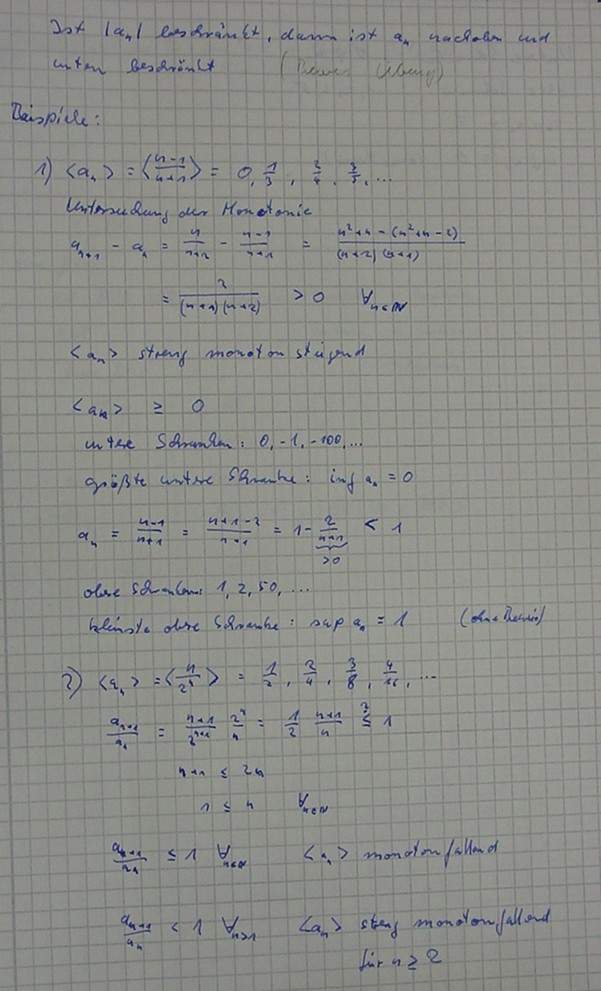 Ist |aₙ| beschränkt, dann ist aₙ nach oben und
unten beschränkt (Beweis Übung)
Beispiele:
1) <aₙ> = <(n-1)/(n+1)> = 0, 1/3, 2/4, 3/5, ...
Untersuchung der Monotonie
aₙ₊₁ - aₙ = n/(n+2) - (n-1)/(n+1) = (n²+n-(n²+n-2))/((n+2)(n+1))
= 2/((n+1)(n+2)) > 0 ∀ n∈ℕ
<aₙ> streng monoton steigend
<aₙ> ≥ 0
untere Schranken: 0, -1, -100, ...
größte untere Schranke: inf aₙ = 0
aₙ = (n-1)/(n+1) = (n+1-2)/(n+1) = 1 - 2/(n+1) < 1
>0
obere Schranken: 1, 2, 50, ...
kleinste obere Schranke: sup aₙ = 1 (ohne Beweis)
2) <aₙ> = <n/2ⁿ> = 1/2, 2/4, 3/8, 4/16, ...
aₙ₊₁/aₙ = (n+1)/2ⁿ⁺¹ 2ⁿ/n = 1/2 (n+1)/n ≤ 1
?
n+1 ≤ 2n
1 ≤ n ∀ n∈ℕ
aₙ₊₁/aₙ ≤ 1 ∀ n∈ℕ <aₙ> monoton fallend
aₙ₊₁/aₙ < 1 ∀ n>1 <aₙ> streng monoton fallend
für n ≥ 2